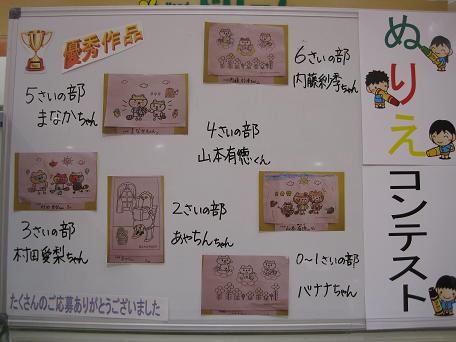 優秀作品
6さいの部
内藤紗季ちゃん
5さいの部
まなかちゃん
4さいの部
山本有徳くん
3さいの部
村田愛梨ちゃん
2さいの部
あやちんちゃん
0~1さいの部
バナナちゃん
たくさんのご応募ありがとうございました
ぬりえ
コンテスト